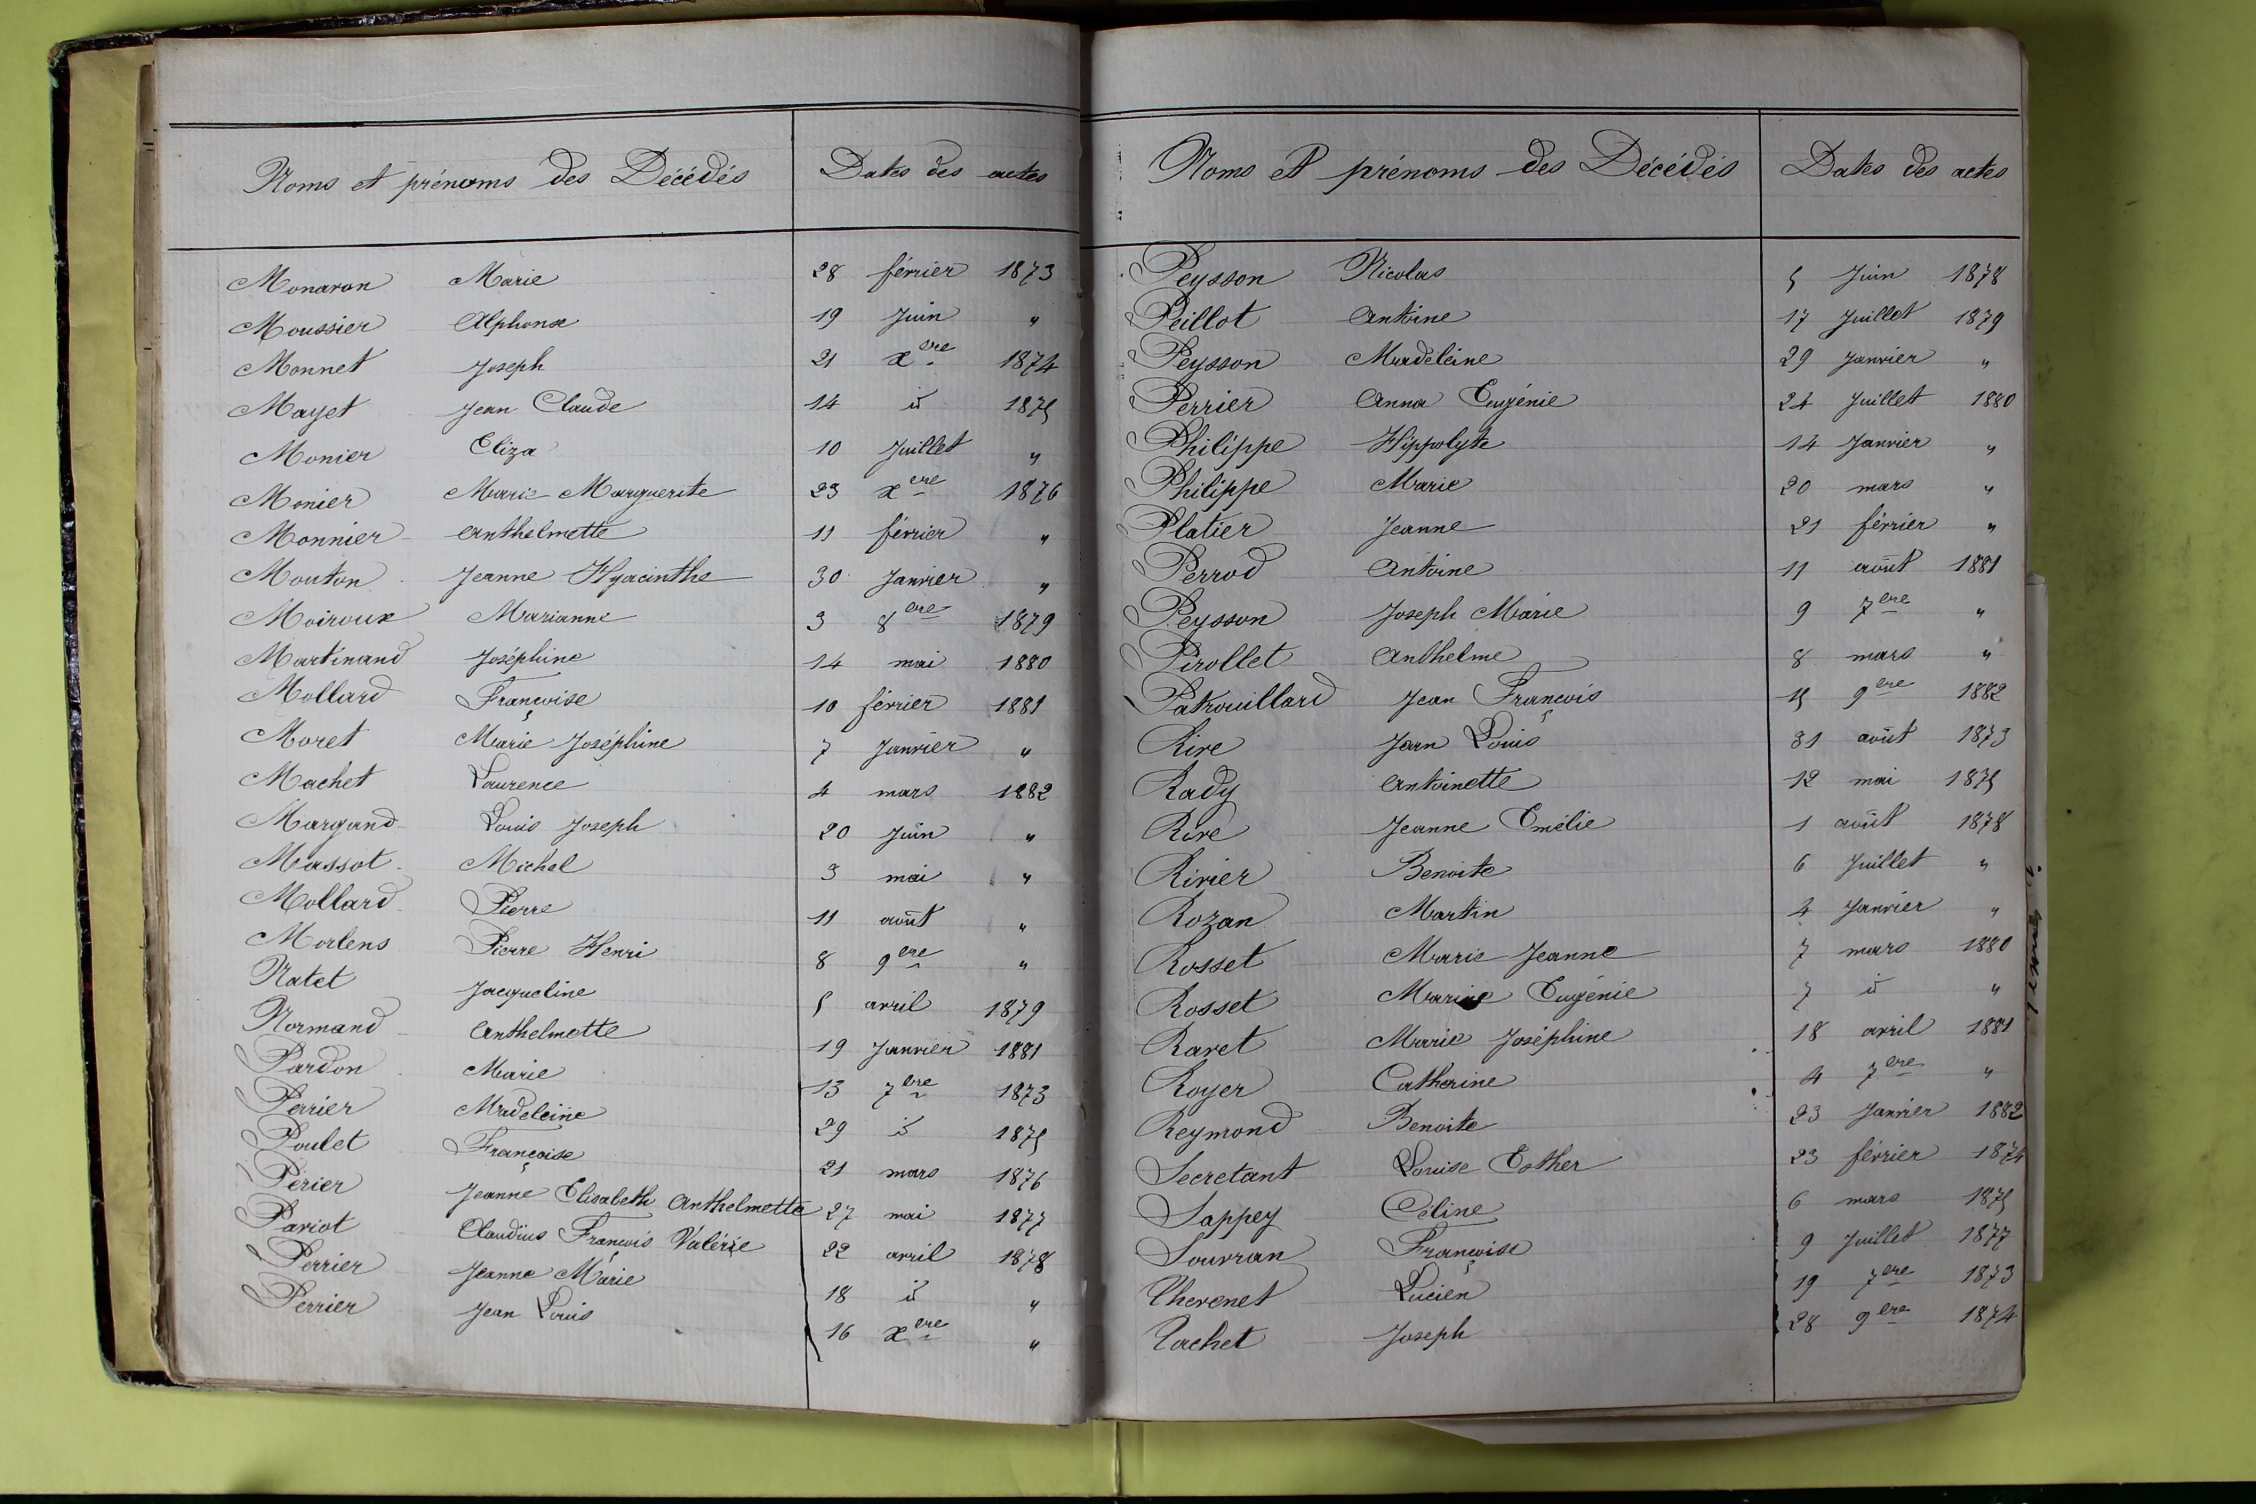 Noms et prénoms des Décédés Dates des actes
Monaron Marie 28 février 1873
Moussier Alphonse 19 Juin "
Monnet Joseph 21 xbre 1874
Mayet Jean Claude 14 id 1875
Monier Eliza 10 Juillet "
Monier Marie Marguerite 23 xbre 1876
Monnier Anthelmette 11 février "
Mouton Jeanne Hyacinthe 30 Janvier "
Moiroux Marianne 3 8bre 1879
Martinand Joséphine 14 mai 1880
Mollard Françoise 10 février 1881
Moret Marie Joséphine 7 Janvier "
Machet Laurence 4 mars 1882
Margand Louis Joseph 20 Juin "
Massot Michel 3 mai "
Mollard Pierre 11 août "
Morlens Pierre Henri 8 9bre "
Natet Jacqueline 5 avril 1879
Normand Anthelmette 19 Janvier 1881
Pardon Marie 13 7bre 1873
Perrier Madeleine 29 id 1875
Poulet Françoise 21 mars 1876
Périer Jeanne Elisabeth Anthelmette 27 mai 1877
Pariot Claudius François Valérie 22 avril 1878
Perrier Jeanne Marie 18 id "
Perrier Jean Louis 16 xbre "
Noms et prénoms des Décédés Dates des actes
Peysson Nicolas 5 Juin 1878
Peillot Antoine 17 Juillet 1879
Peysson Madeleine 29 Janvier "
Perrier Anna Eugénie 24 Juillet 1880
Philippe Hippolyte 14 Janvier "
Philippe Marie 20 mars "
Platier Jeanne 21 février "
Perrod Antoine 11 août 1881
Peysson Joseph Marie 9 7bre "
Pirollet Anthelme 8 mars "
Patrouillard Jean François 15 9bre 1882
Rive Jean Louis 31 août 1873
Rady Antoinette 12 mai 1875
Rive Jeanne Emélie 1 août 1878
Rivier Benoite 6 Juillet "
Rozan Martin 4 Janvier "
Rosset Marie Jeanne 7 mars 1880
Rosset Marie Eugénie 7 id "
Ravet Marie Joséphine 18 avril 1881
Royer Catherine 4 7bre "
Reymond Benoite 23 Janvier 1882
Secretant Louise Esther 23 février 1874
Sappey Céline 6 mars 1875
Souvran Françoise 9 Juillet 1877
Thevenet Lucien 19 7bre 1873
Tachet Joseph 28 9bre 1874